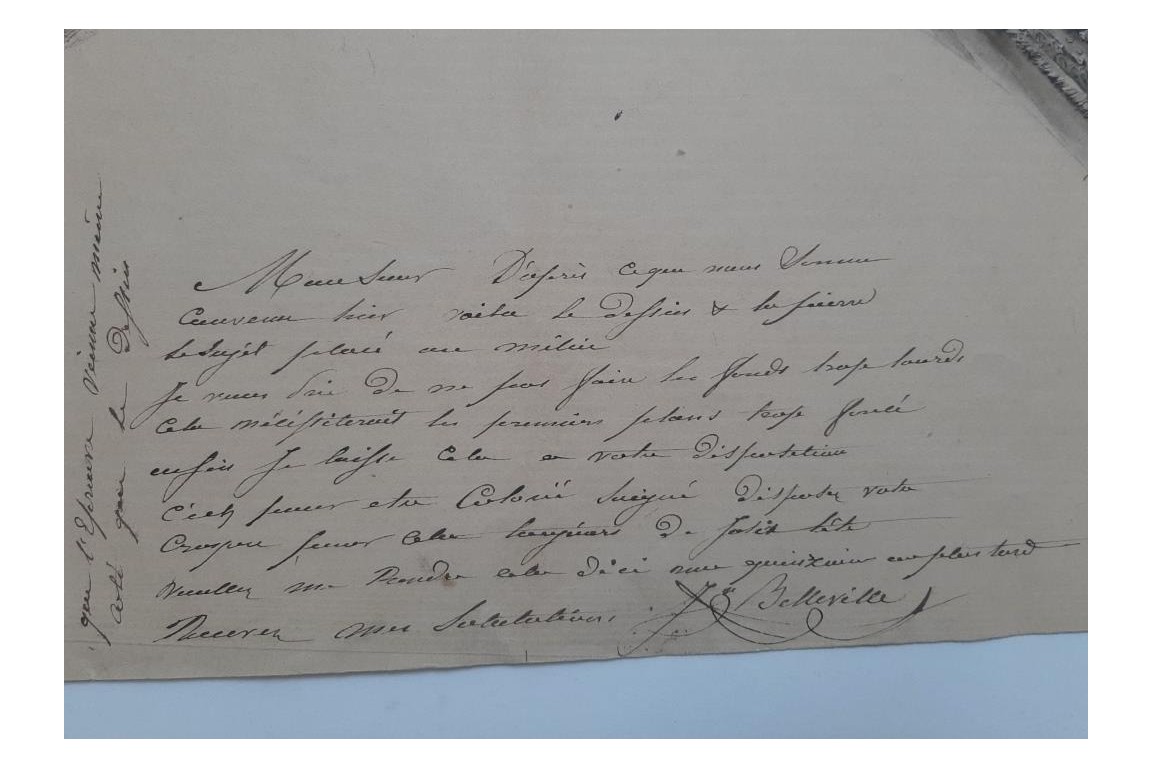 Monsieur D'après ce que nous somme
Convenu hier voila le Dessin & la pierre
le sujet placé au milieu
Je vous prie de ne pas faire les fonds trop lourds
Cela nécéssiterait les premiers plans trop foncé
enfin Je laisse cela a votre disposition
c'est pour etre Colorié soigné disposez votre
Crayon pour cela toujours de petit
veuillez me Rendre cela d'ici une quinzaine au plus tard
Recevez mes Salutations Belleville
que l'Epreuve vienne même
coté que le Dessin